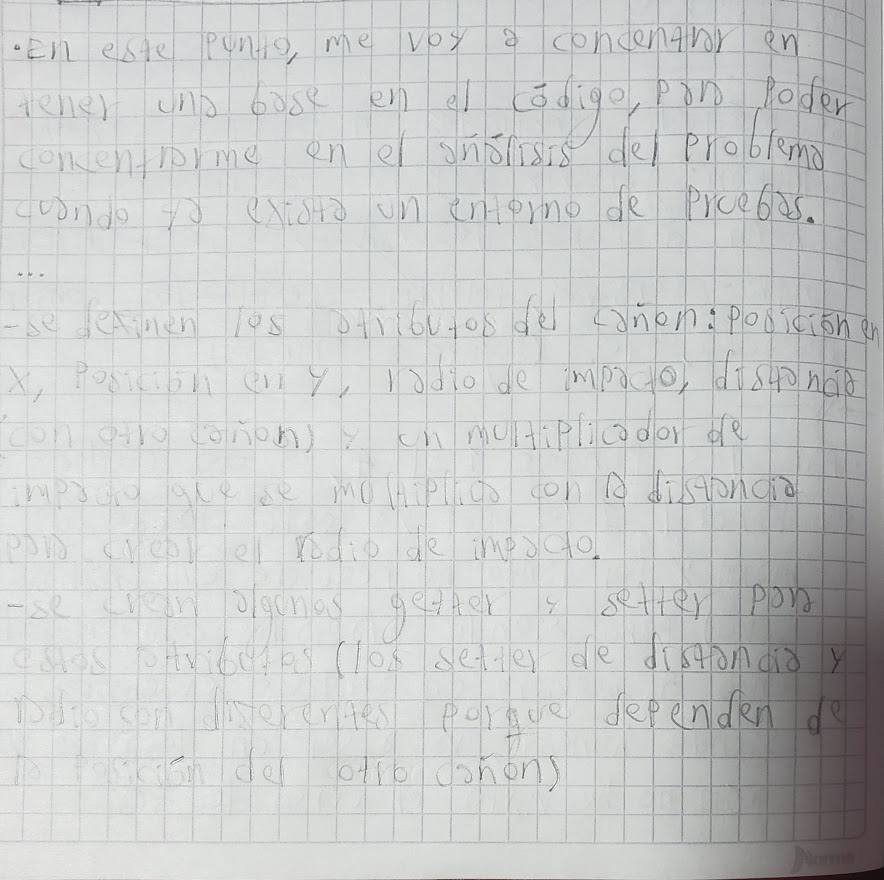 • En este punto, me voy a concentrar en
tener una base en el código, para poder
concentrarme en el análisis del problema
cuando ya exista un entorno de pruebas.
...
- se definen los atributos del cañon: posición en
x, posición en y, radio de impacto, distancia
(con otro cañon) y un multiplicador de
impacto que se multiplica con la distancia
para crear el radio de impacto.
- se crean algunos getter y setter para
estos atributos (los setter de distancia y
radio son diferentes porque dependen de
la posición del otro cañon)
Norma